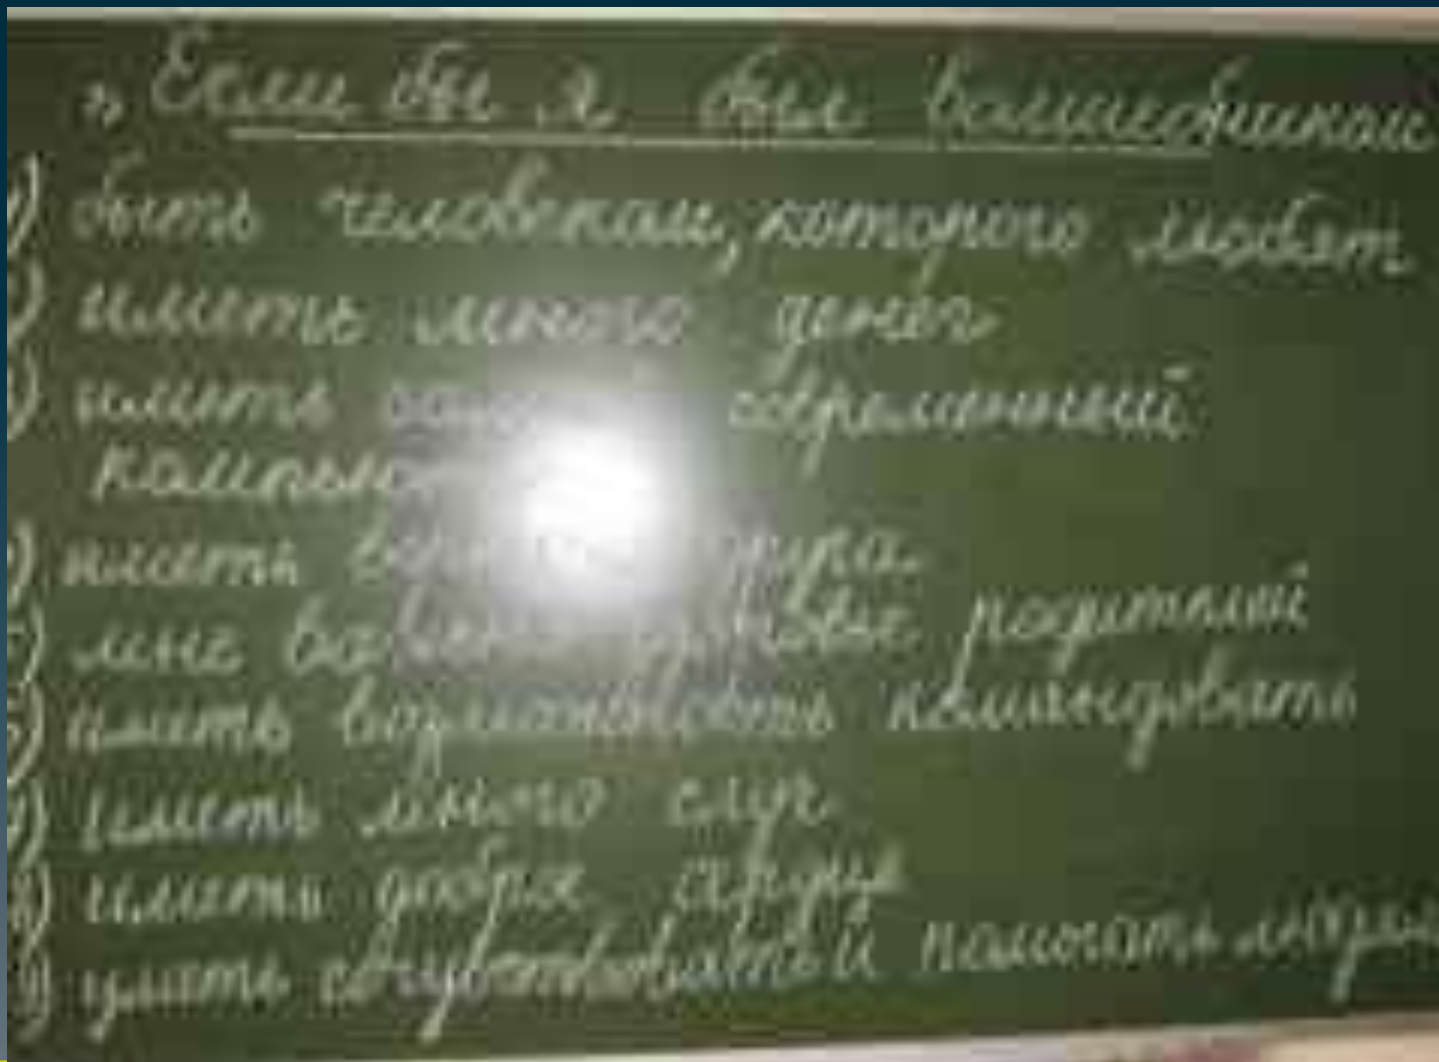 „Если бы я был волшебником
1) быть человеком, которого любят
2) иметь много денег
3) иметь самый современный
компьют
4) иметь друга.
5) мне важно здоровье родителей
6) иметь возможность командовать
7) иметь много слуг
8) иметь доброе сердце
9) уметь сочувствовать и помогать людям